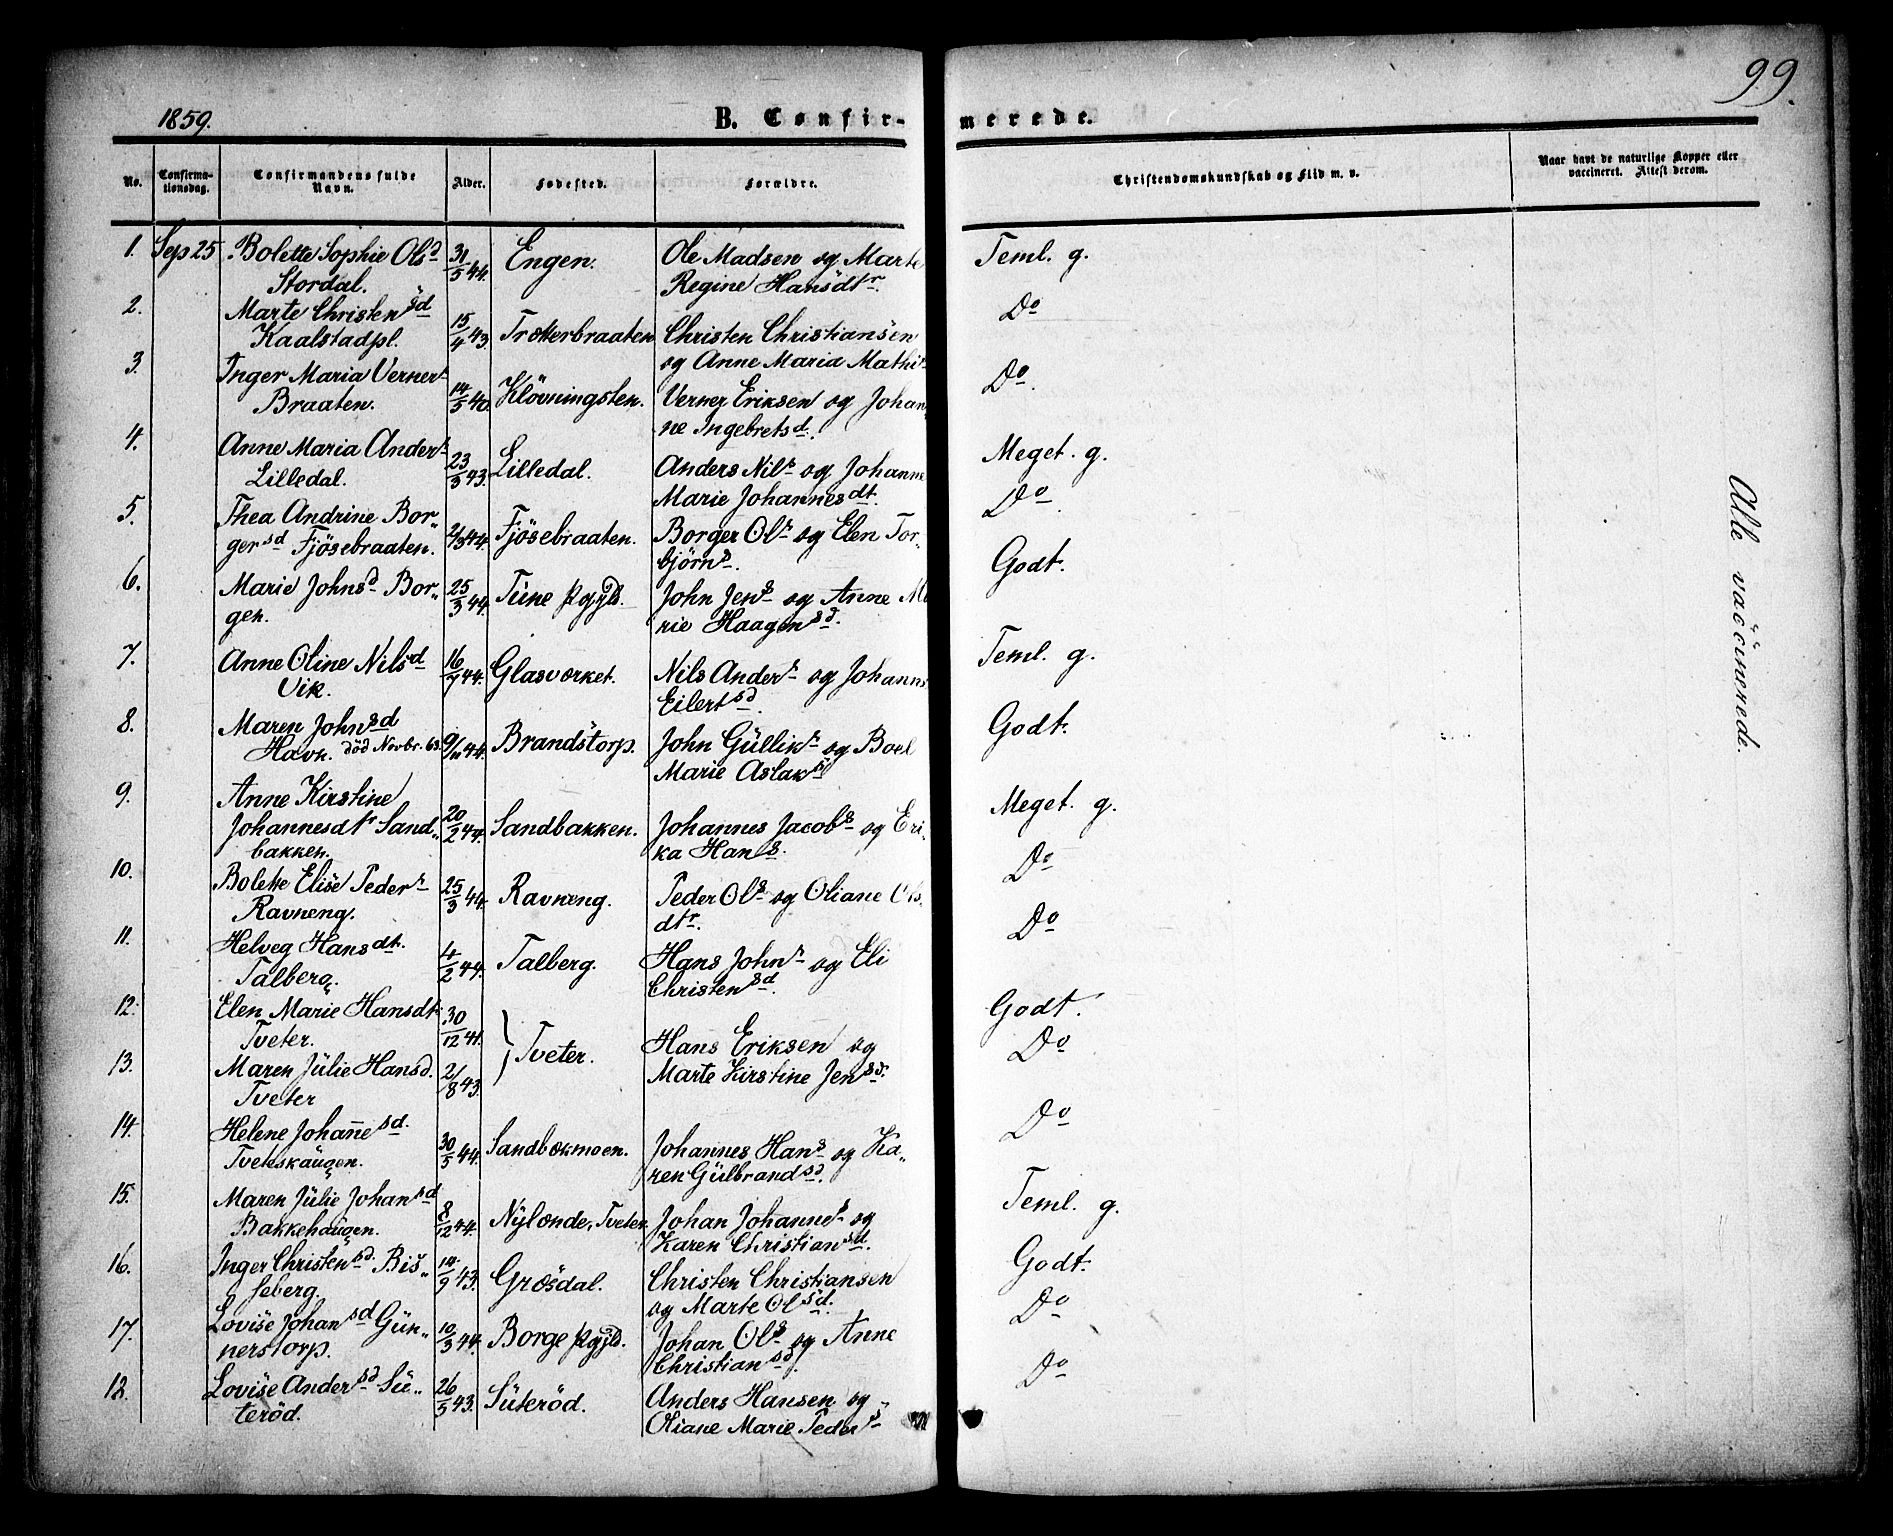 99.
1859.
B. Confir-
merede.
No.
Confirma-
tionsdag.
Confirmandens fulde
Navn.
Alder.
Fødested.
Forældre.
Christendomskundskab og Flid m. v.
Naar havt de naturlige Kopper eller
vaccineret. Attest derom.
1. Sep 25 Bolette Sophie Olsd 31/5 44. Engen. Ole Madsen og Marte Teml. g.
Stordal. Regine Hansdtr.
2. Marte Christensd 15/4 43. Trotterbraaten Christen Christiansen Do
Kaalstadpl. og Anne Maria Mathi
3. Inger Maria Verner 14/5 40. Klövningsten. Verner Eriksen og Johan Do.
Braaten. ne Ingebretsd.
4. Anne Maria Anders 23/3 43. Lilledal. Anders Nils og Johanne Meget. g.
Lilledal. Marie Johannesdt.
5. Thea Andrine Bor- 2/3 44. Fjösebraaten. Borger Ols og Elen Tor- Do
gersd Fjösebraaten. björns.
6. Marie Johnsd Bor- 25/3 44. Tune Pgjld. John Jens og Anne Ma Godt.
gen. rie Haagensd.
7. Anne Oline Nilsd 16/7 44. Glasværket. Nils Anders og Johanne Teml. g.
Vik. Eilertsd.
8. Maren Johnsd 9/11 44. Brandstorp. John Gullik og Boel Godt.
Havn. död Novbr. 63. Marie Aslaks
9. Anne Kirstine
Johannesdtr Sand- 20/2 44. Sandbakken. Johannes Jacobs og Eri- Meget. g.
bakken. ka Hans.
10. Bolette Elise Peders 25/3 44. Ravneng. Peder Ols og Oliane Ols- Do
Ravneng. dtr.
11. Helveg Hansdt. 4/2 44. Talberg. Hans Johns og Eli Do
Talberg. Christensd.
12. Elen Marie Hansdt. 30/12 41. Tveter. Hans Eriksen og Godt.
Tveter. Marte Kirstine Jensd.
13. Maren Julie Hansd. 2/8 43. Do
Tveter
14. Helene Johannesd. 30/5 44. Sandbækmoen. Johannes Hans og Ka- Do
Tvetskaugen. ren Gulbrandsd.
15. Maren Julie Johansd 8/12 44. Nylænde, Tveter. Johan Johannes og Teml. g.
Bakkehaugen. Karen Christiansd.
16. Inger Christensd. Bis- 14/9 43. Græsdal. Christen Christiansen Godt.
seberg. og Marte Olsd.
17. Lovise Johansd Gun- 10/3 44. Borge Pgjld. Johan Ols og Anne Do
nerstorp. Christiansd.
12. Lovise Andersd Su- 26/5 43. Suteröd. Anders Hansen og Do
teröd. Oliane Marie Peders
Alle vaccinerede.